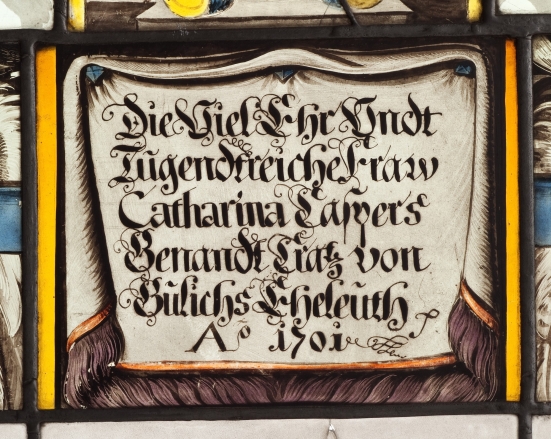 Die Viel Ehr Vndt
Tugendtreiche Fraw
Catharina Caspers
Genandt Cratz von
Gulichs Eheleuth
Aº 1701